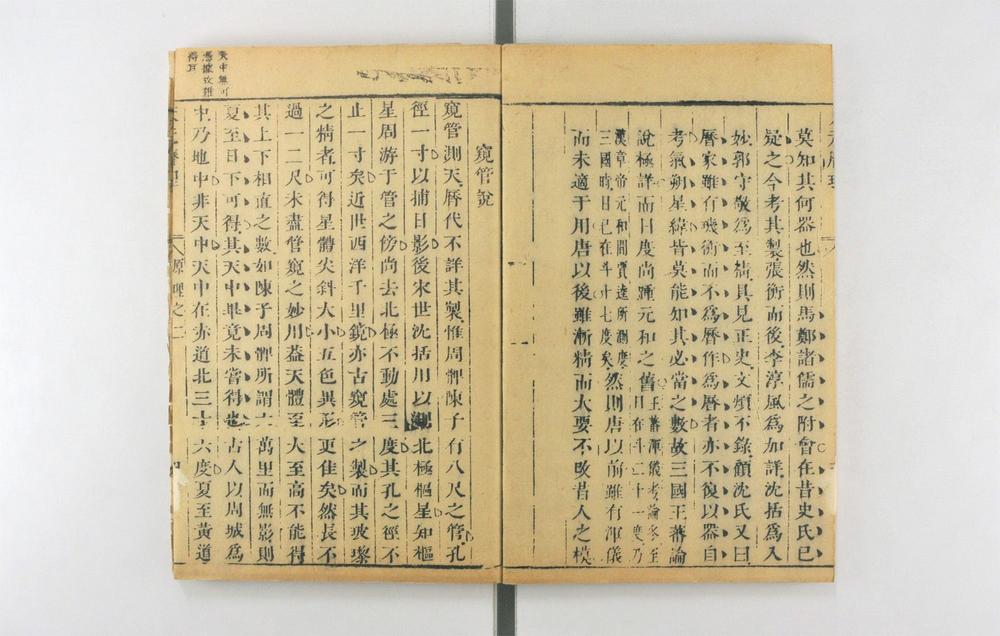 莫知其何器也然則馬鄭諸儒之附會在昔史氏已
疑之今考其製張衡而後李淳風爲加詳沈括爲入
妙郭守敬爲至精具見正史文煩不錄顧沈氏又曰
曆家雖有璣衡而不爲曆作爲曆者亦不復以器自
考氣朔星緯皆莫能知其必當之數故三國王蕃論
說極詳而日度尚踵元和之舊王蕃渾儀考論冬至
日在斗二十一度乃
漢章帝元和間賈逵所測度
三國時日已在斗十七度矣然則唐以前雖有渾儀
而未適于用唐以後雖漸精而大要不改昔人之模
窺管說
窺管測天曆代不詳其製惟周髀陳子有八尺之管孔
徑一寸以捕日影後宋世沈括用以測北極樞星知樞
星周游于管之傍尚去北極不動處三度其孔之徑不
止一寸矣近世西洋千里鏡亦古窺管之製而其玻瓈
之精者可得星體尖斜大小五色異形更佳矣然長不
過一二尺未盡管窺之妙用葢天體至大至高不能得
其上下相直之數如陳子周髀所謂六萬里而無影則
夏至日下可得其天中畢竟未嘗得也古人以周城爲
中乃地中非天中天中在赤道北三十六度夏至黃道
天中無可
憑據故難
得耳
原理之二